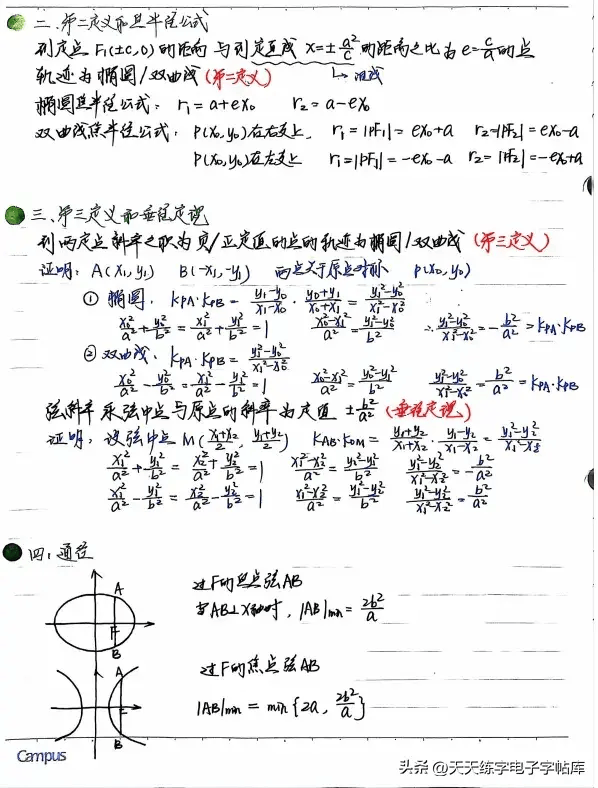 二、第二定义和焦半径公式
到定点 F₁(±c,0) 的距离与到定直线 x=±a²/c 的距离之比为 e=c/a 的点
轨迹为椭圆/双曲线 (第二定义) → 准线
椭圆焦半径公式: r₁=a+ex₀ r₂=a-ex₀
双曲线焦半径公式: P(x₀,y₀)在右支上, r₁=|PF₁|=ex₀+a r₂=|PF₂|=ex₀-a
P(x₀,y₀)在左支上 r₁=|PF₁|=-ex₀-a r₂=|PF₂|=-ex₀+a
三、第三定义和垂径定理
到两定点斜率之积为负/正定值的点的轨迹为椭圆/双曲线 (第三定义)
证明: A(x₁,y₁) B(-x₁,-y₁) 两点关于原点对称 P(x₀,y₀)
① 椭圆, KPA·KPB = (y₁-y₀)/(x₁-x₀) · (y₀+y₁)/(x₀+x₁) = (y₁²-y₀²)/(x₁²-x₀²)
x₀²/a²+y₀²/b²=x₁²/a²+y₁²/b²=1 (x₀²-x₁²)/a²=(y₁²-y₀²)/b² ∴(y₁²-y₀²)/(x₁²-x₀²)=-b²/a²=KPA·KPB
② 双曲线, KPA·KPB=(y₁²-y₀²)/(x₁²-x₀²)
x₀²/a²-y₀²/b²=x₁²/a²-y₁²/b²=1 (x₀²-x₁²)/a²=(y₀²-y₁²)/b² (y₁²-y₀²)/(x₁²-x₀²)=b²/a²=KPA·KPB
弦斜率乘弦中点与原点的斜率为定值 ±b²/a² (垂径定理)
证明: 设弦中点 M((x₁+x₂)/2, (y₁+y₂)/2) KAB·KOM=(y₁+y₂)/(x₁+x₂)·(y₁-y₂)/(x₁-x₂)=(y₁²-y₂²)/(x₁²-x₂²)
x₁²/a²+y₁²/b²=x₂²/a²+y₂²/b²=1 (x₁²-x₂²)/a²=(y₂²-y₁²)/b² (y₁²-y₂²)/(x₁²-x₂²)=-b²/a²
x₁²/a²-y₁²/b²=x₂²/a²-y₂²/b²=1 (x₁²-x₂²)/a²=(y₁²-y₂²)/b² (y₁²-y₂²)/(x₁²-x₂²)=b²/a²
四: 通径
A
F
B
过F的焦点弦AB
当AB⊥x轴时, |AB|min=2b²/a
A
F
B
过F的焦点弦AB
|AB|min=min{2a, 2b²/a}
Campus
头条 @天天练字电子字帖库